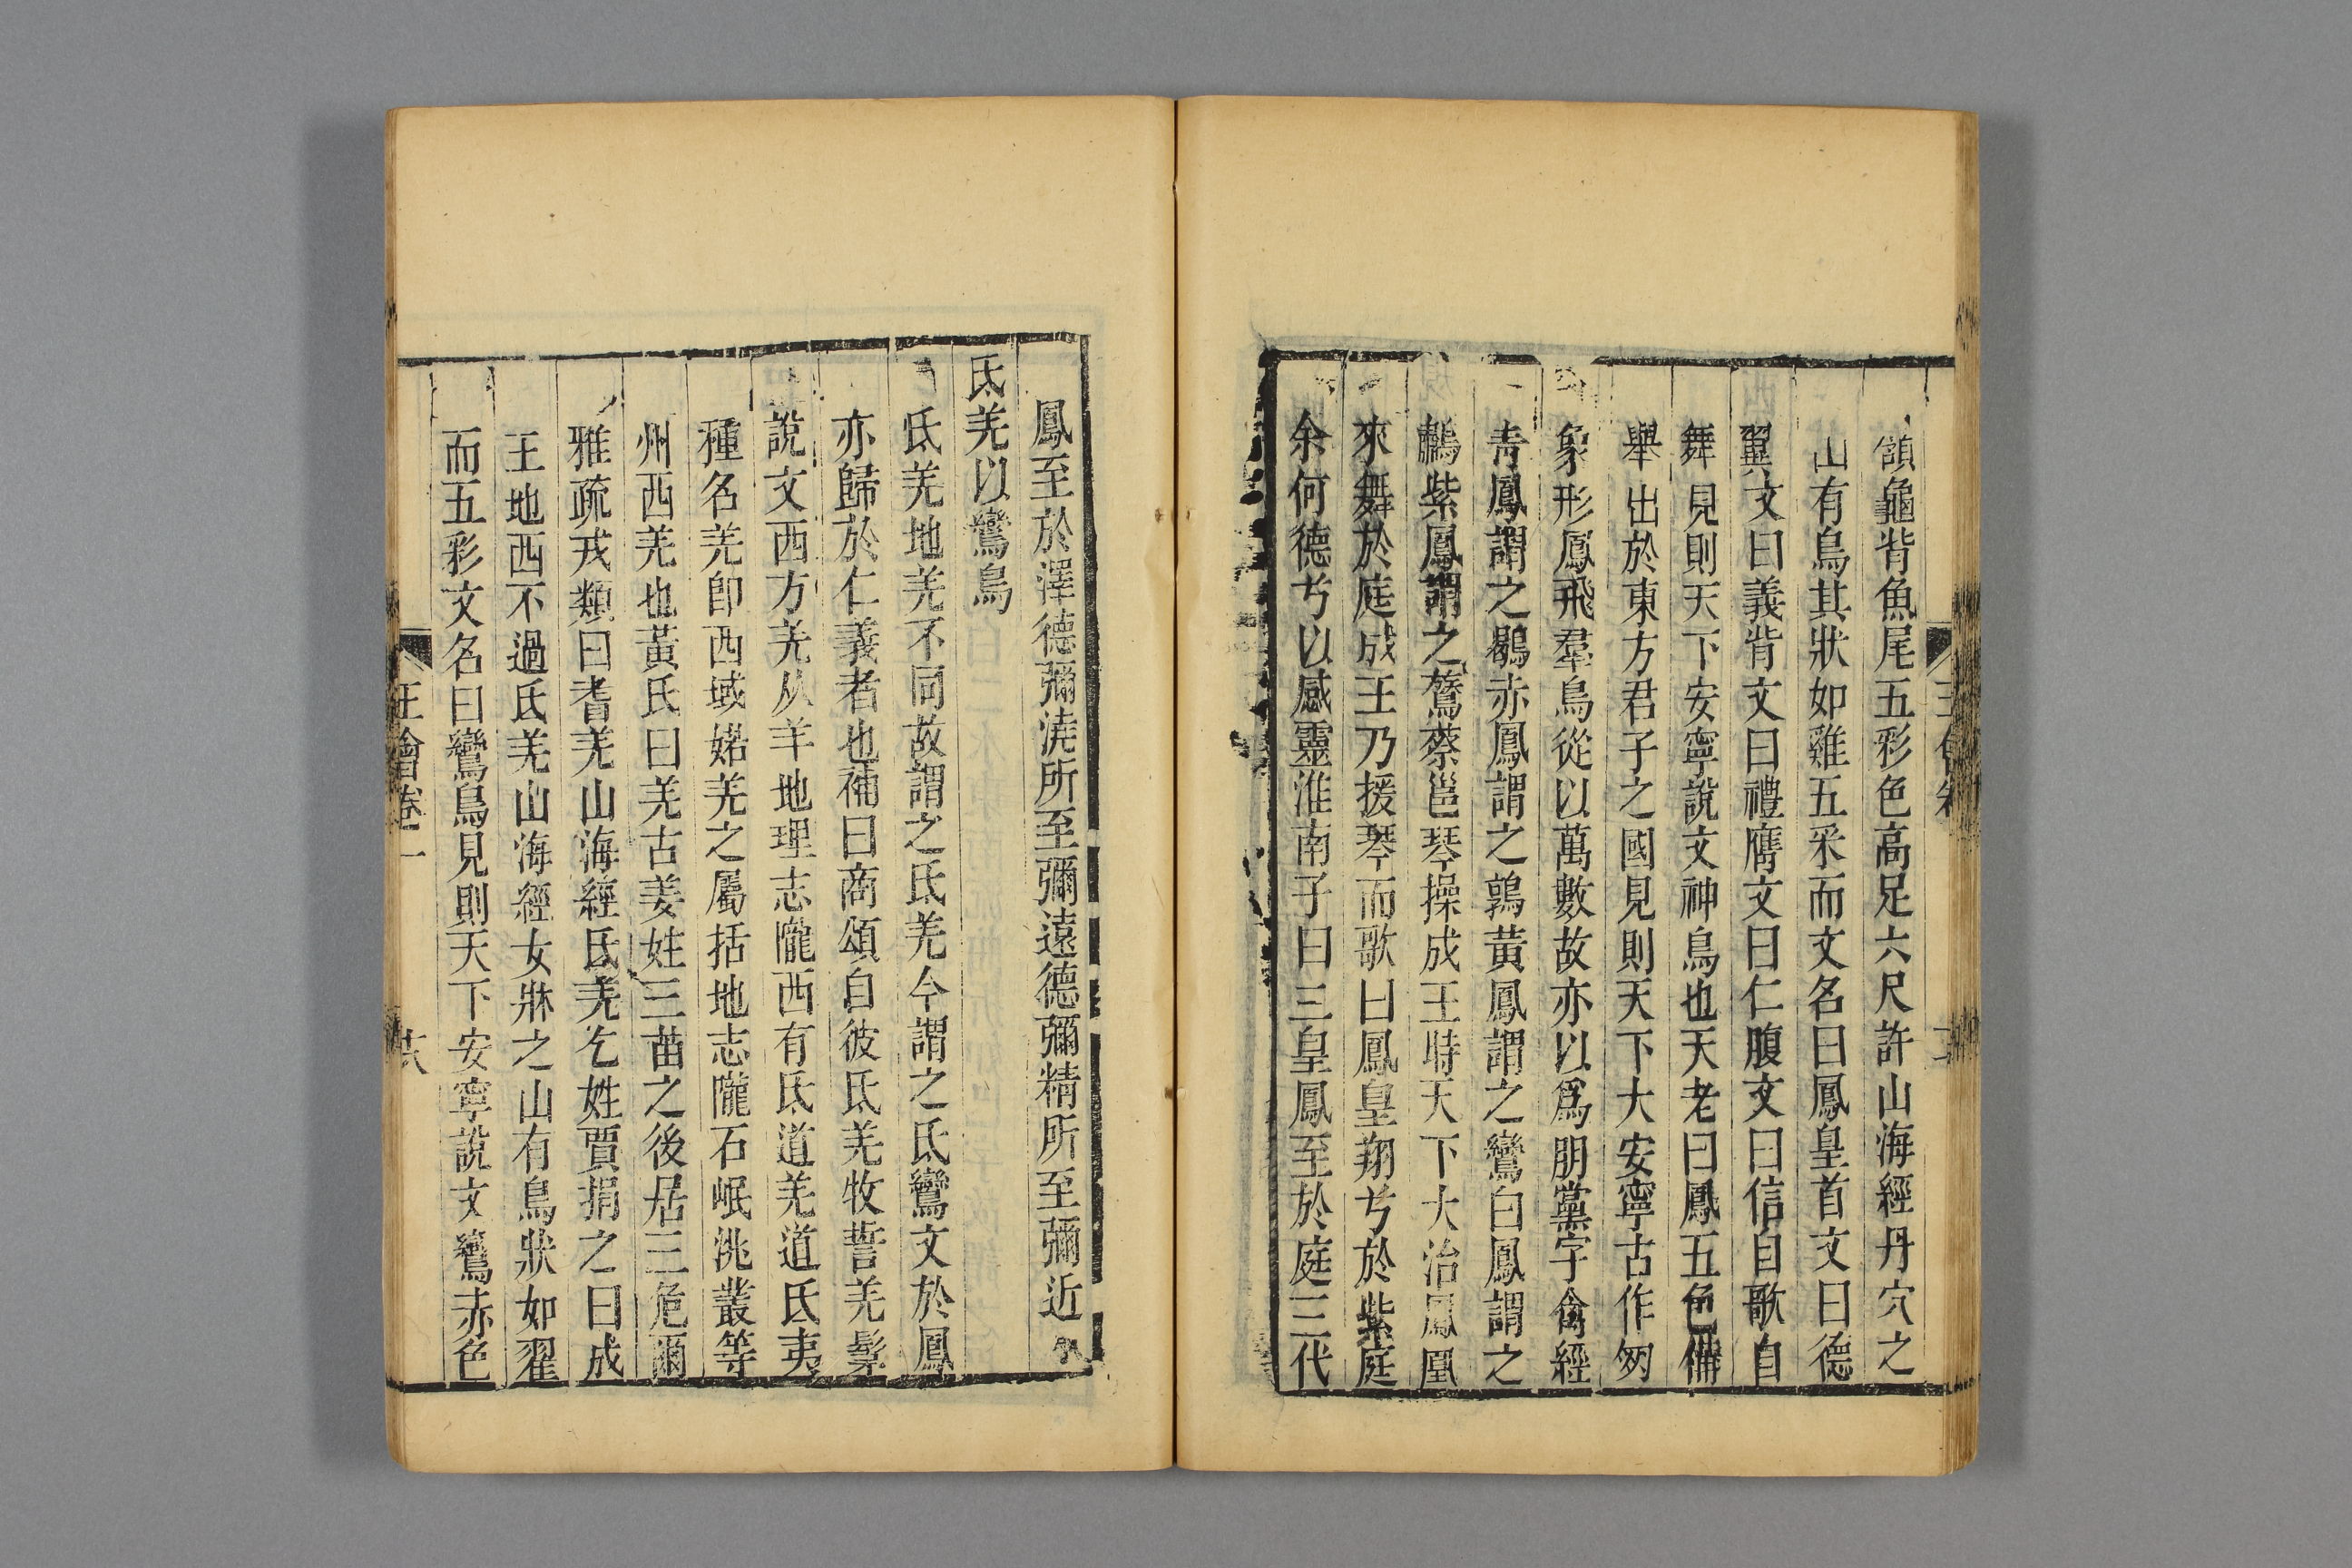 頷龜背魚尾五彩色高足六尺許山海經丹穴之
山有鳥其狀如雞五采而文名曰鳳皇首文曰德
翼文曰義背文曰禮膺文曰仁腹文曰信自歌自
舞見則天下安寧說文神鳥也天老曰鳳五色備
舉出於東方君子之國見則天下大安寧古作
象形鳳飛羣鳥從以萬數故亦以爲朋黨字禽經
青鳳謂之鶡赤鳳謂之鶉黃鳳謂之鸞白鳳謂之
鷫紫鳳謂之鷟蔡邕琴操成王時天下大治鳳凰
來舞於庭成王乃援琴而歌曰鳳皇翔兮於紫庭
余何德兮以感靈淮南子曰三皇鳳至於庭三代
鳳至於澤德彌澆所至彌遠德彌精所至彌近
氐羌以鸞鳥
氐羌地羌不同故謂之氐羌今謂之氐鸞文於鳳
亦歸於仁義者也補曰商頌自彼氐羌牧誓羌髳
說文西方羌从羊地理志隴西有氐道羌道氐夷
種名羌卽西域婼羌之屬括地志隴石岷洮叢等
州西羌也黃氏曰羌古姜姓三苗之後居三危爾
雅疏戎類曰耆羌山海經氐羌乞姓賈捐之曰成
王地西不過氐羌山海經女牀之山有鳥狀如翟
而五彩文名曰鸞鳥見則天下安寧說文鸞赤色
王會卷一